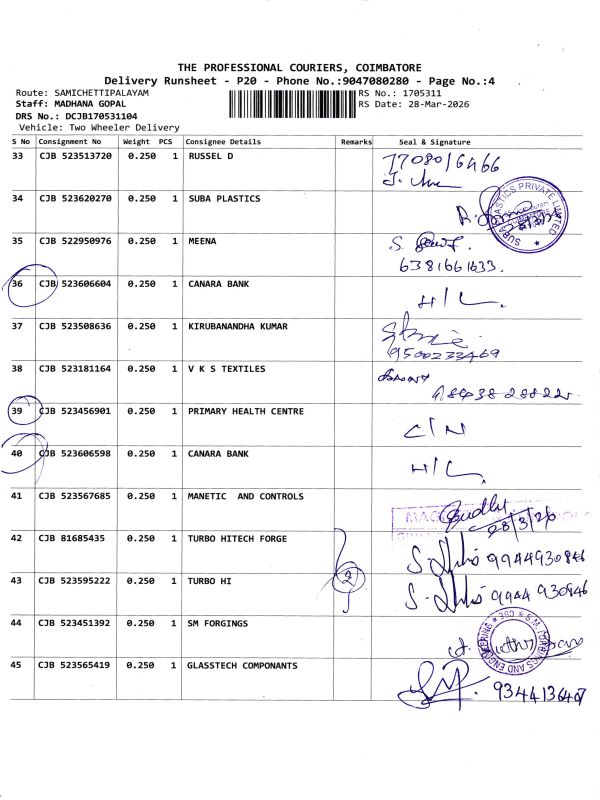 THE PROFESSIONAL COURIERS, COIMBATORE
Delivery Runsheet - P20 - Phone No.:9047080280 - Page No.:4
Route: SAMICHETTIPALAYAM RS No.: 1705311
Staff: MADHANA GOPAL RS Date: 28-Mar-2026
DRS No.: DCJB170531104
Vehicle: Two Wheeler Delivery
S No Consignment No Weight PCS Consignee Details Remarks Seal & Signature
33 CJB 523513720 0.250 1 RUSSEL D
34 CJB 523620270 0.250 1 SUBA PLASTICS
SUBA PLASTICS PRIVATE LIMITED
35 CJB 522950976 0.250 1 MEENA S.
6381661633.
36 CJB 523606604 0.250 1 CANARA BANK H/L.
37 CJB 523508636 0.250 1 KIRUBANANDHA KUMAR
9500233469
38 CJB 523181164 0.250 1 V K S TEXTILES
39 CJB 523456901 0.250 1 PRIMARY HEALTH CENTRE C/N
40 CJB 523606598 0.250 1 CANARA BANK H/L.
41 CJB 523567685 0.250 1 MANETIC AND CONTROLS
28/3/26
42 CJB 81685435 0.250 1 TURBO HITECH FORGE 9944930846
2
43 CJB 523595222 0.250 1 TURBO HI 9944 930846
44 CJB 523451392 0.250 1 SM FORGINGS
45 CJB 523565419 0.250 1 GLASSTECH COMPONANTS 9344136407